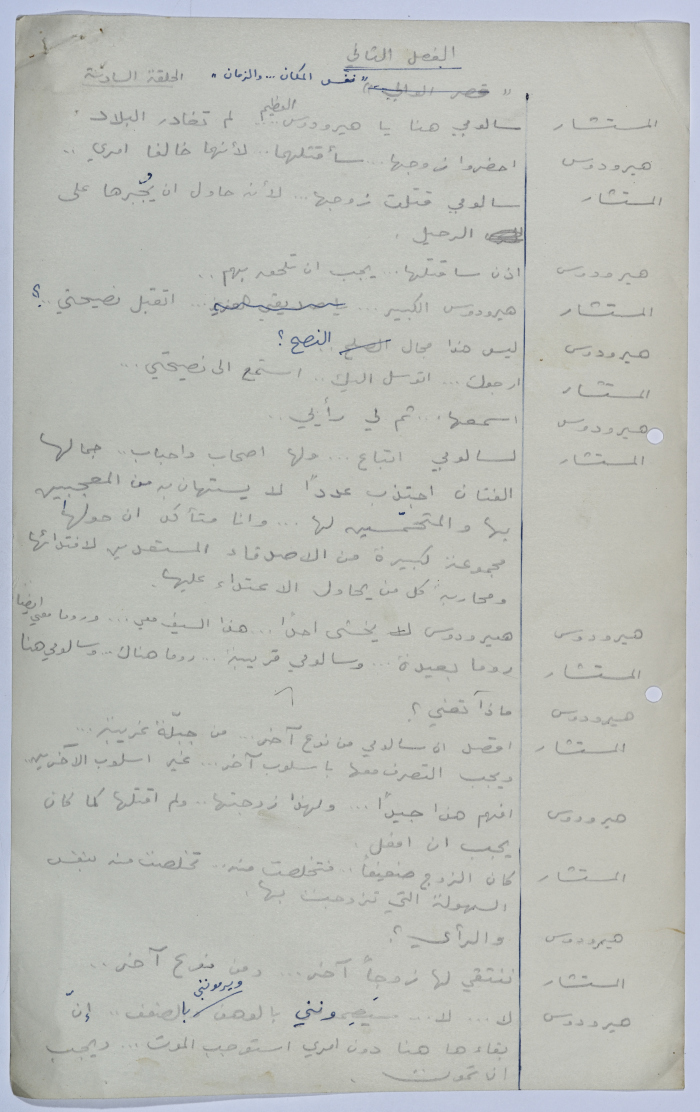 الفصل الثاني
"قصر الوالي" "نفس المكان... والزمان" الحلقة السادسة
المستشار سالومي هنا يا هيرودوس العظيم... لم تغادر البلاد.
هيرودوس احضروا زوجها... سأقتلهما.. لأنها خالفا امري ..
المستشار سالومي قتلت زوجها... لأنه حاول ان يُجْبرها على
الرحيل.
هيرودوس اذن سأقتلها... يجب ان تلحق بهم ..
المستشار هيرودوس الكبير ... اتقبل نصيحتي ..؟
هيرودوس ليس هذا مجال الصلح النصح؟
المستشار ارجوك... اتوسل اليك.. استمع الى نصيحتي...
هيرودوس اسمعها... ثم لي رأيي ..
المستشار لسالومي اتباع... ولها اصحاب واحباب.. جمالها
الفتان اجتذب عدداً لا يستهان به من المعجبين
بها والمتحمّسين لها ... وانا متأكد ان حولها
مجموعة كبيرة من الاصدقاء المستعدين لافتدائها
ومحاربة كل من يحاول الاعتداء عليها.
هيرودوس هيرودوس لا يخشى احداً... هذا السيف معي ... وروما معي ايضاً
المستشار روما بعيدة ... وسالومي قريبة ... روما هناك.. وسالومي هنا
هيرودوس ماذا تعني؟
المستشار اقصد ان سالومي من نوع آخر... من جبلّة غريبة...
ويجب التصرف معها باسلوب آخر... غير اسلوب الآخرين..
هيرودوس افهم هذا جيداً... ولهذا زوجتها.. ولم اقتلها كما كان
يجب ان افعل.
المستشار كان الزوج ضعيفاً.. فتخلصت منه.. تخلصت منه بنفس
السهولة التي تزوجت بها.
هيرودوس والرأي؟
المستشار ننتقي لها زوجاً آخر... ومن نوع آخر ..
هيرودوس لا... لا... سيَصِمونني بالوهن ويرمونني بالضعف .. إنّ
بقاءها هنا دون امري استوجب الموت ... ويجب
ان تموت.